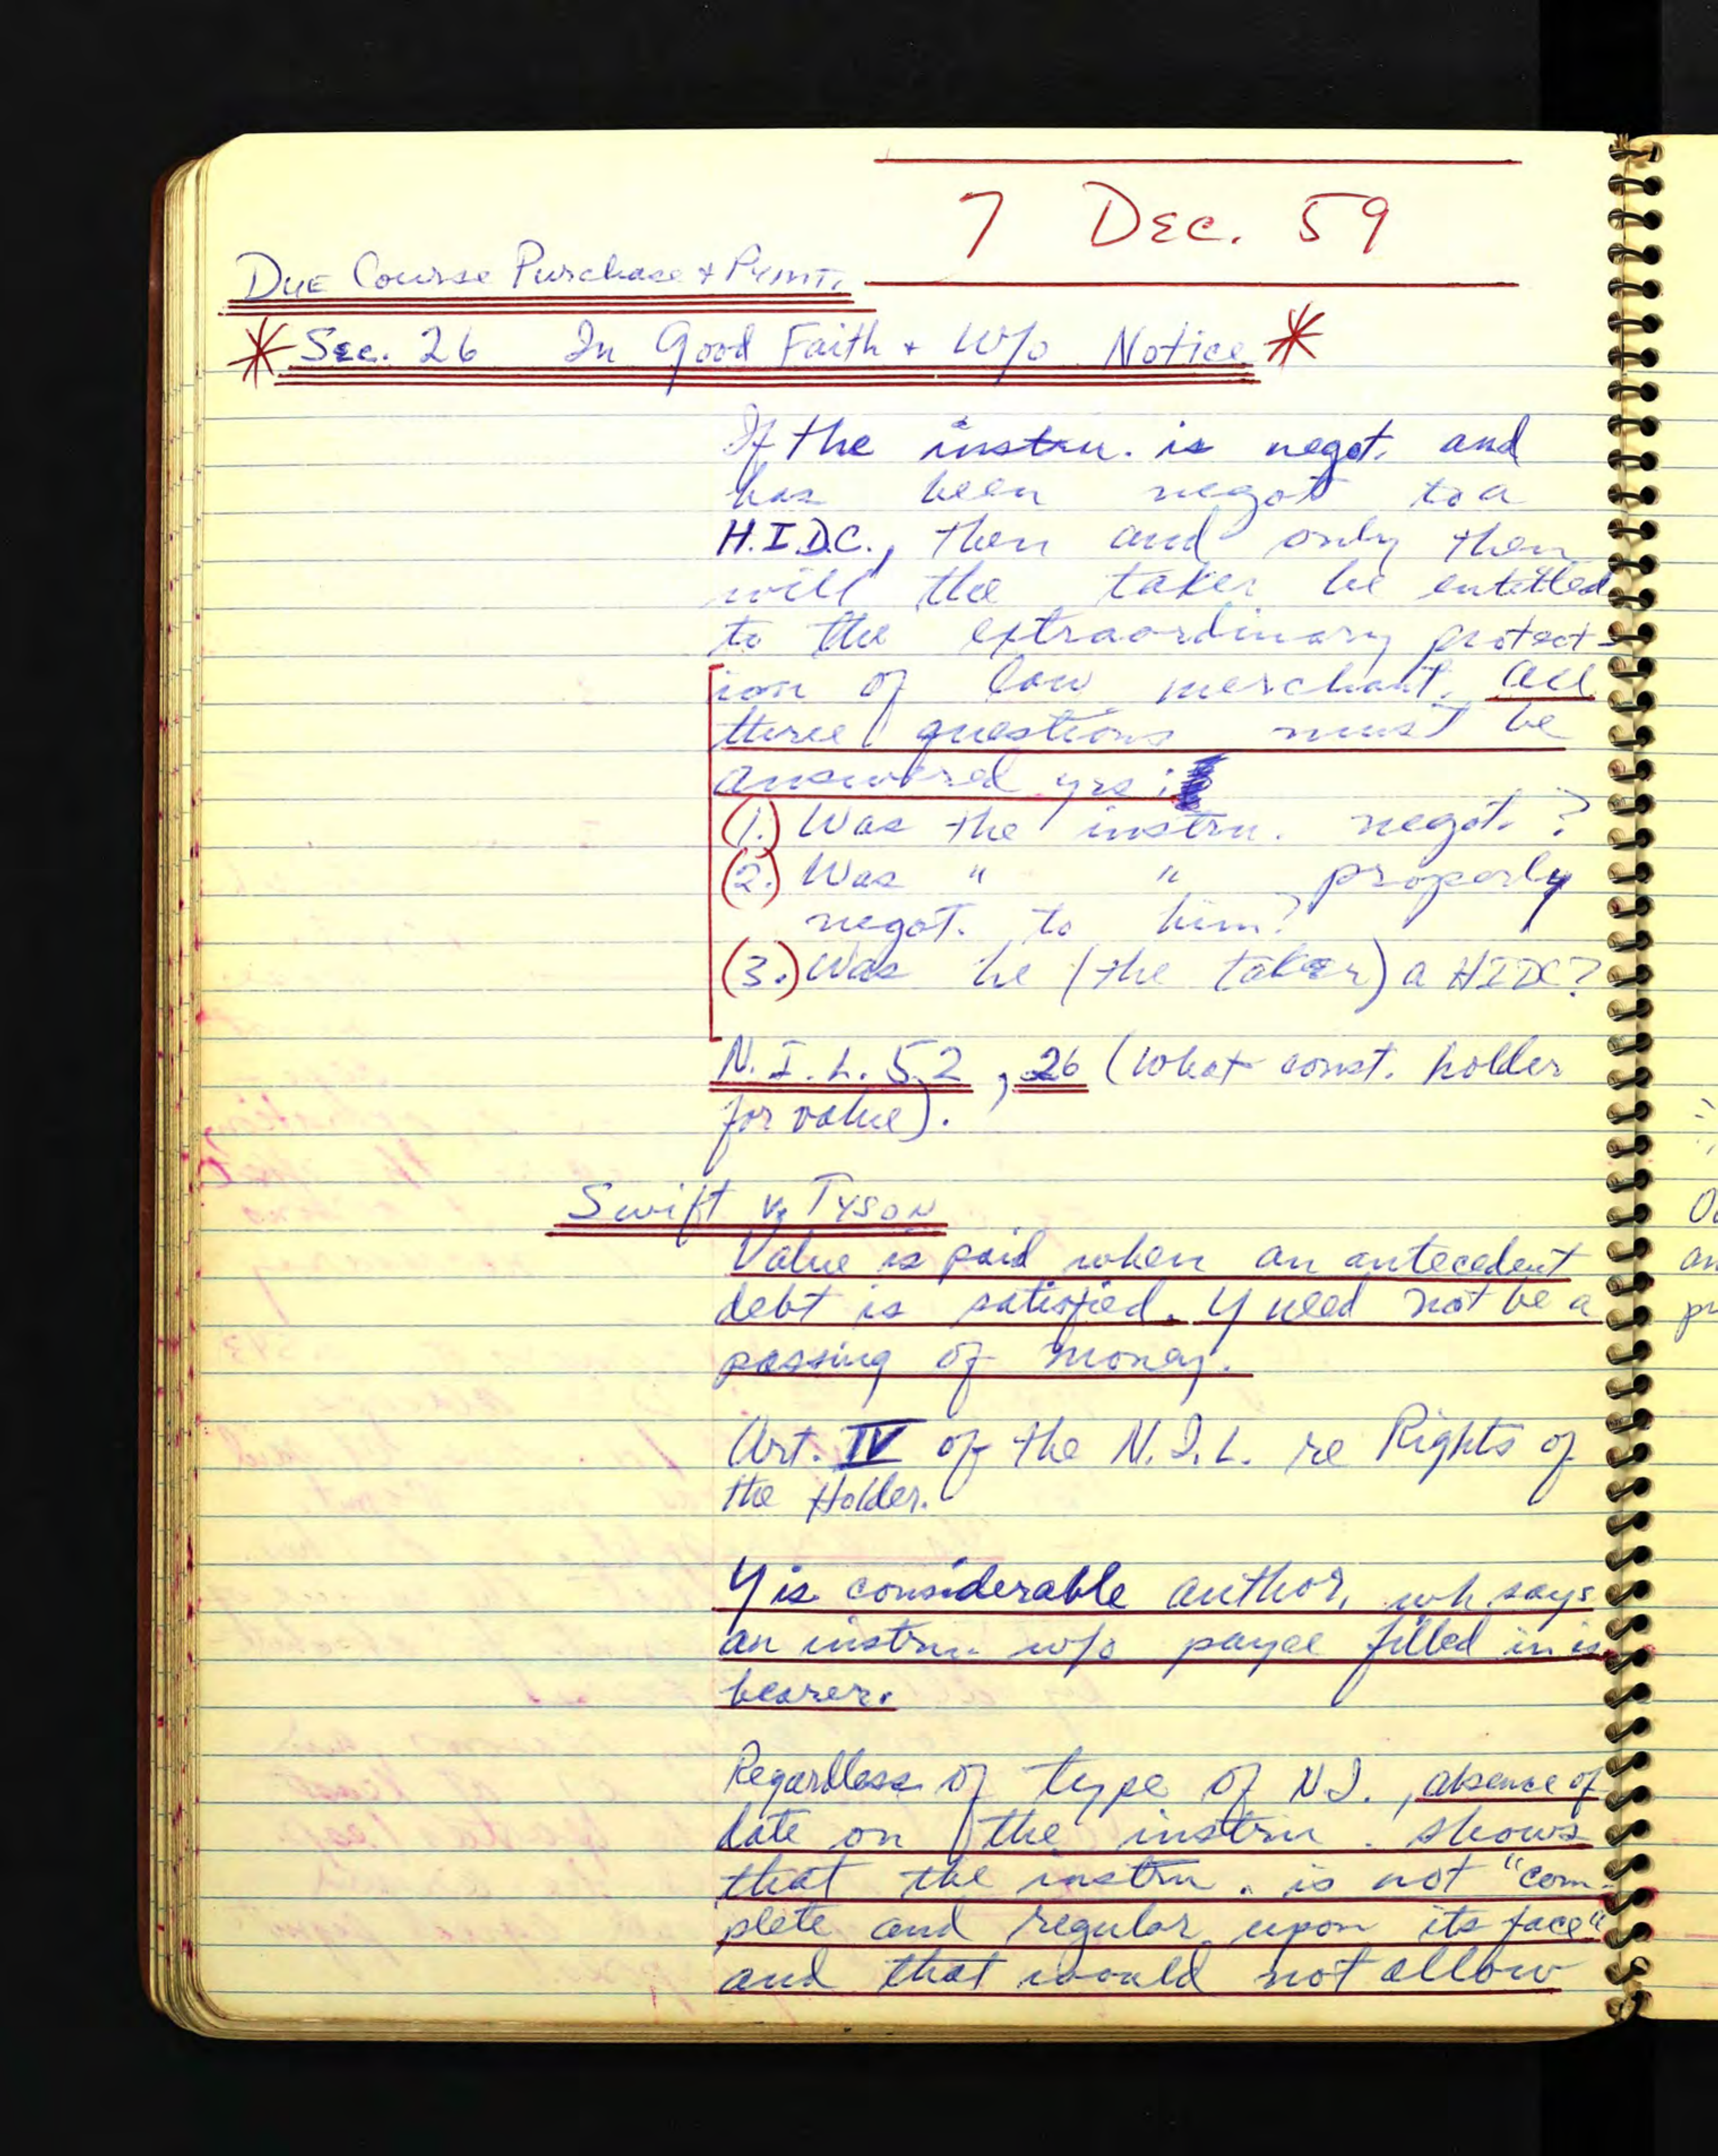 7 Dec. 59
Due Course Purchase + Pymt.
* Sec. 26 In Good Faith + W/o Notice *
If the instru. is negot. and
has been negot to a
H.I.D.C., then and only then
will the taker be entitled
to the extraordinary protect-
ion of law merchant. All
three questions must be
answered yes:
(1.) Was the instru. negot.?
(2.) Was " " properly
negot. to him?
(3.) Was he (the taker) a HIDC?
N.I.L. 52, 26 (What const. holder
for value).
Swift v. Tyson
Value is paid when an antecedent
debt is satisfied. Y need not be a
passing of money.
Art. IV of the N.I.L. re Rights of
the Holder.
Y is considerable author. wh says
an instru. w/o payee filled in is
bearer.
Regardless of type of N.I., absence of
date on the instru. shows
that the instru. is not "com-
plete and regular upon its face"
and that would not allow